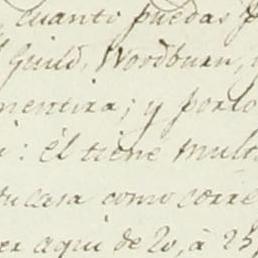 cuanto puedas p
Guild, Woodburn, y
mentira; y por lo
: él tiene mult
tu casa como corre
er aqui de 20, à 25